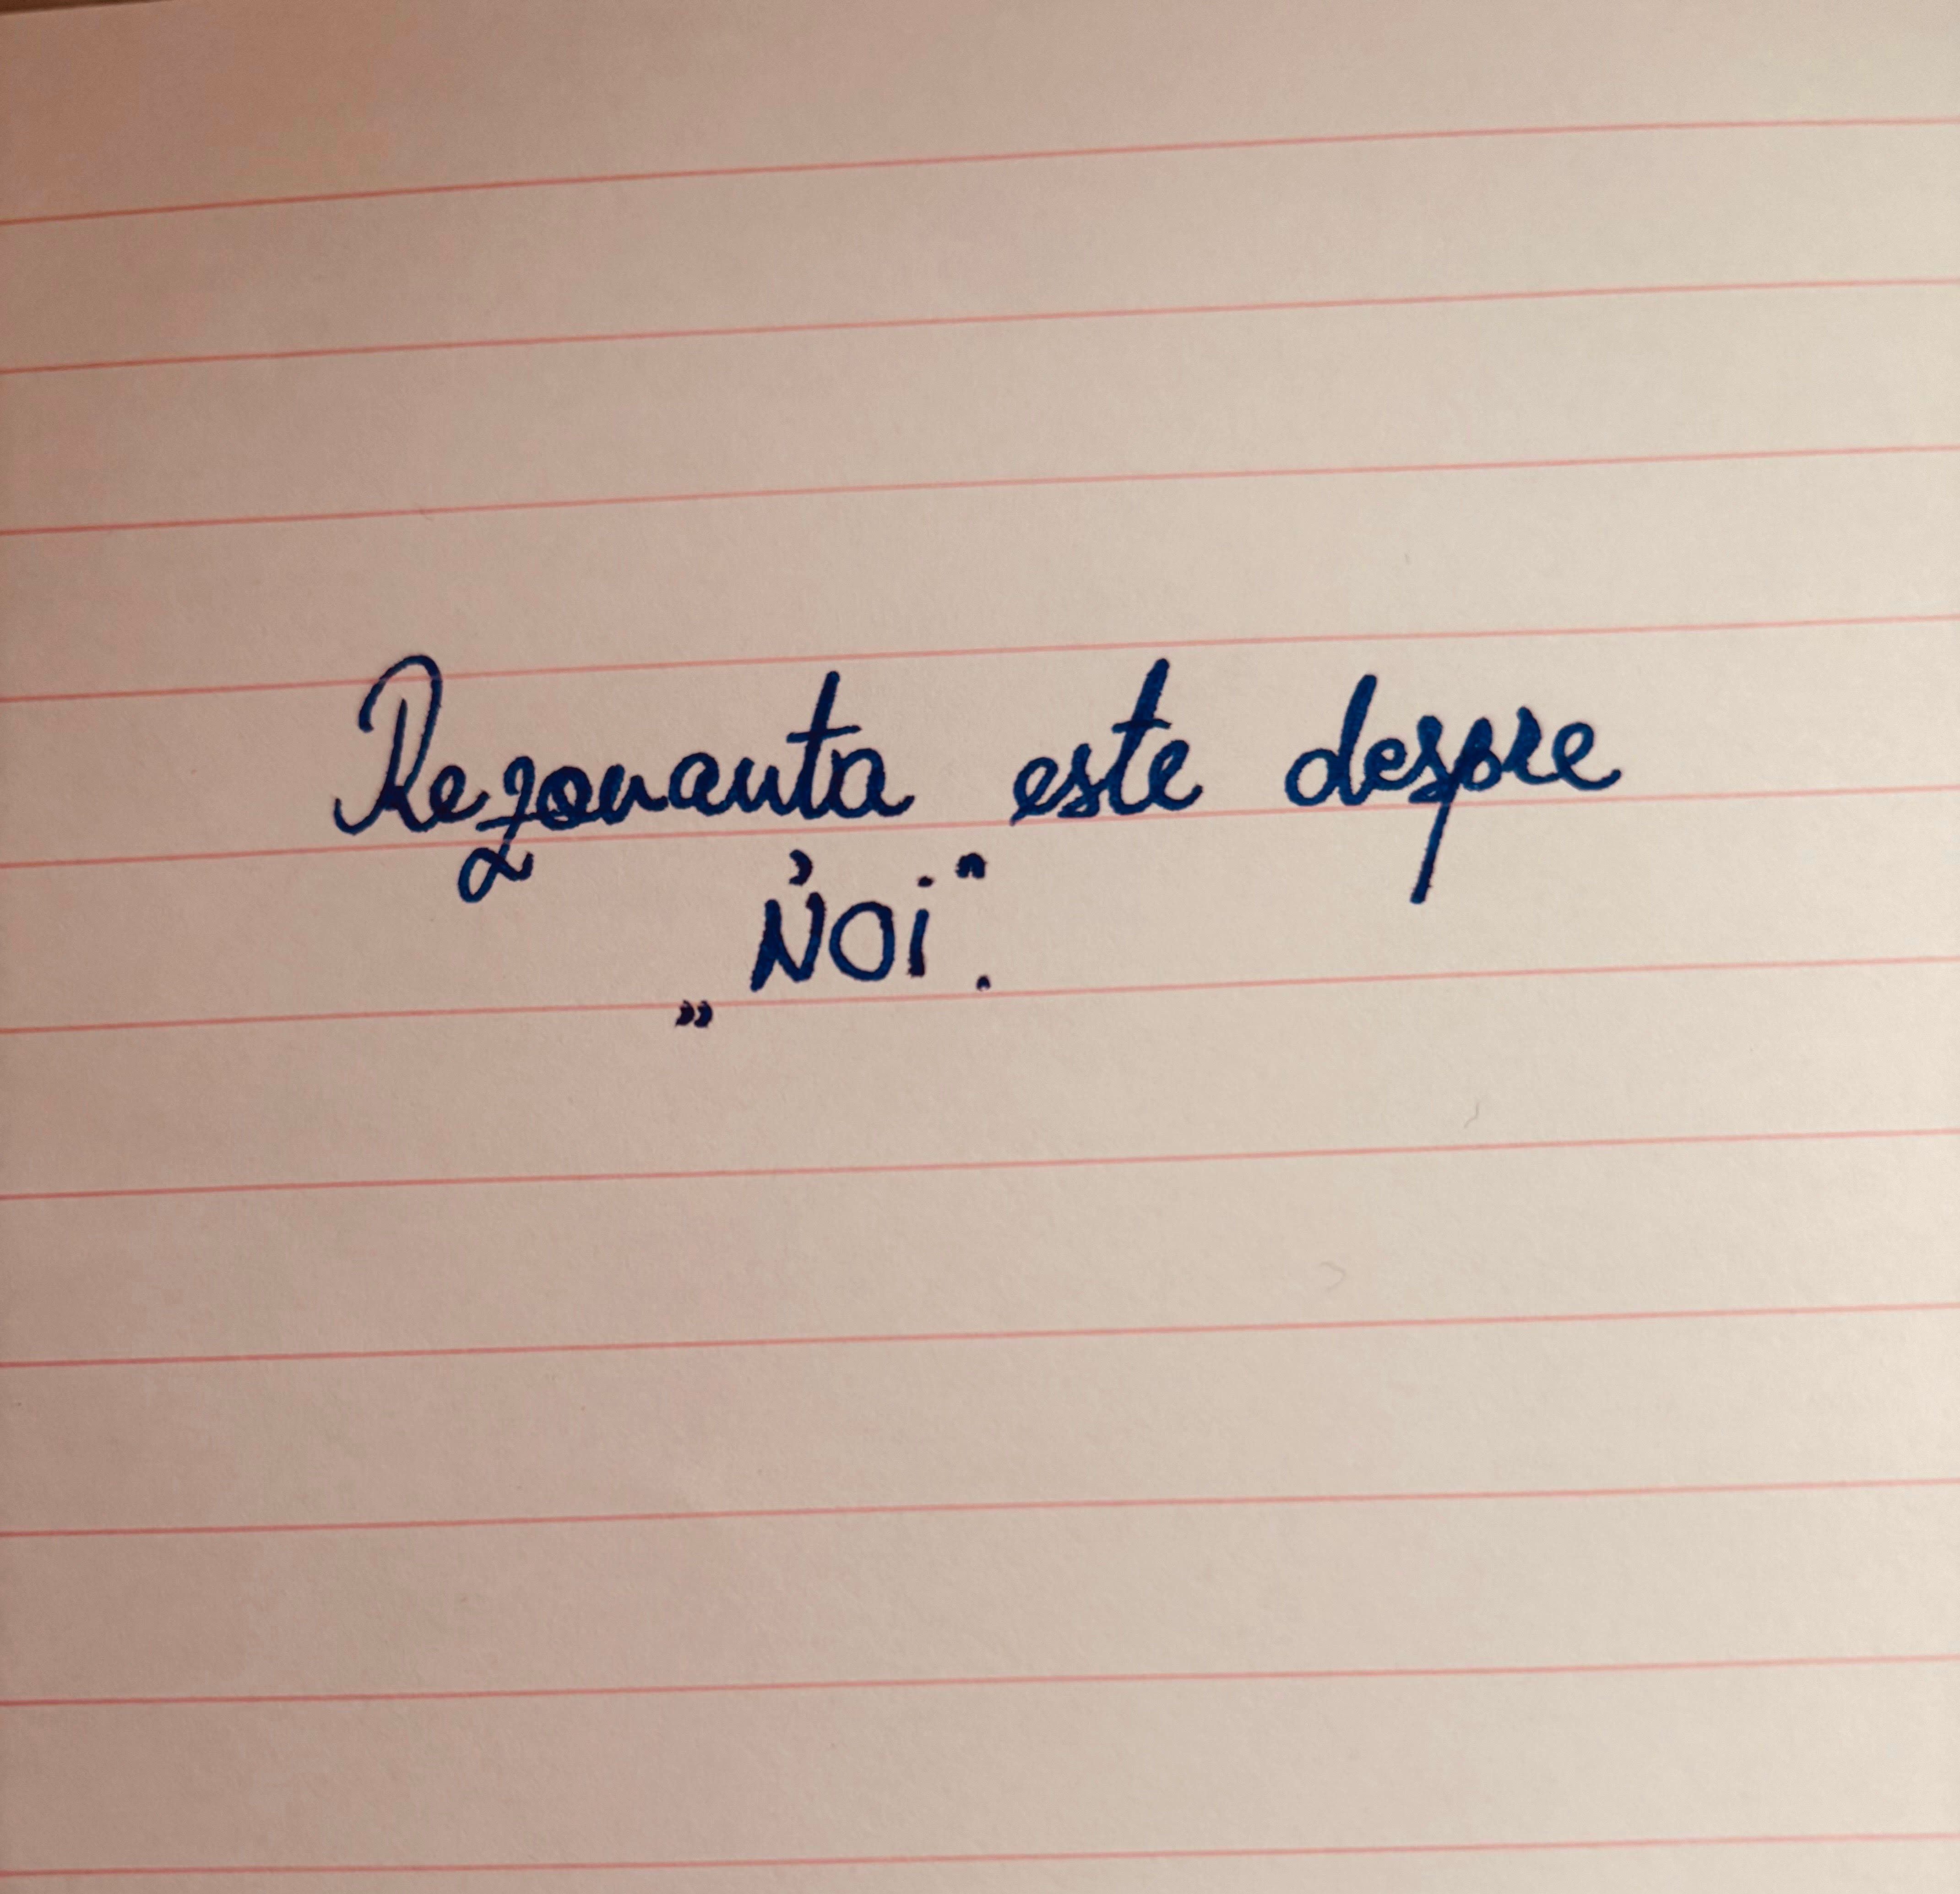 Rezonanta este despre
„NOI".